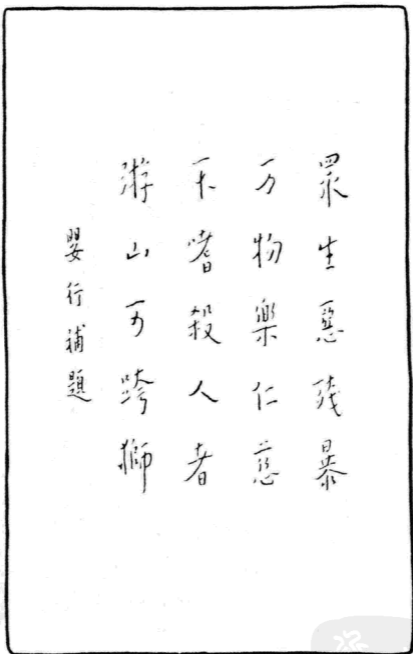 眾生惡殘暴
万物樂仁慈
不嗜殺人者
游山可跨獅
嬰行補題